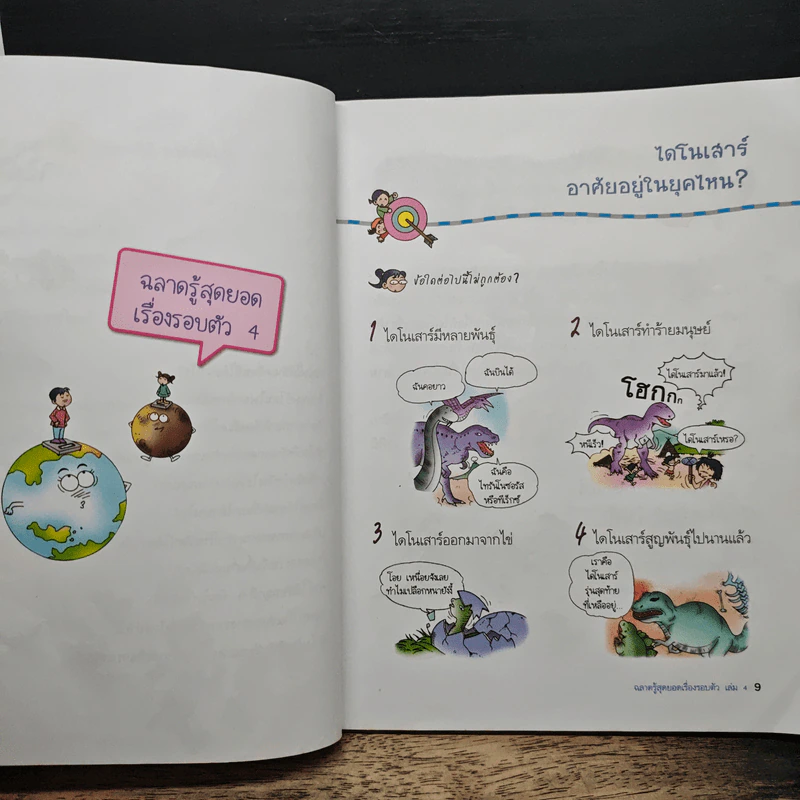 ฉลาดรู้สุดยอด
เรื่องรอบตัว 4
ไดโนเสาร์
อาศัยอยู่ในยุคไหน?
ข้อใดต่อไปนี้ไม่ถูกต้อง?
1 ไดโนเสาร์มีหลายพันธุ์
ฉันคอยาว
ฉันบินได้
ฉันคือ
ไทรันโนซอรัส
หรือทีเร็กซ์
2 ไดโนเสาร์ทำร้ายมนุษย์
โฮกกก
ไดโนเสาร์มาแล้ว!
หนีเร็ว!
ไดโนเสาร์เหรอ?
3 ไดโนเสาร์ออกมาจากไข่
โอย เหนื่อยจังเลย
ทำไมเปลือกหนายังงี้
4 ไดโนเสาร์สูญพันธุ์ไปนานแล้ว
เราคือ
ไดโนเสาร์
รุ่นสุดท้าย
ที่เหลืออยู่...
ฉลาดรู้สุดยอดเรื่องรอบตัว เล่ม 4 9